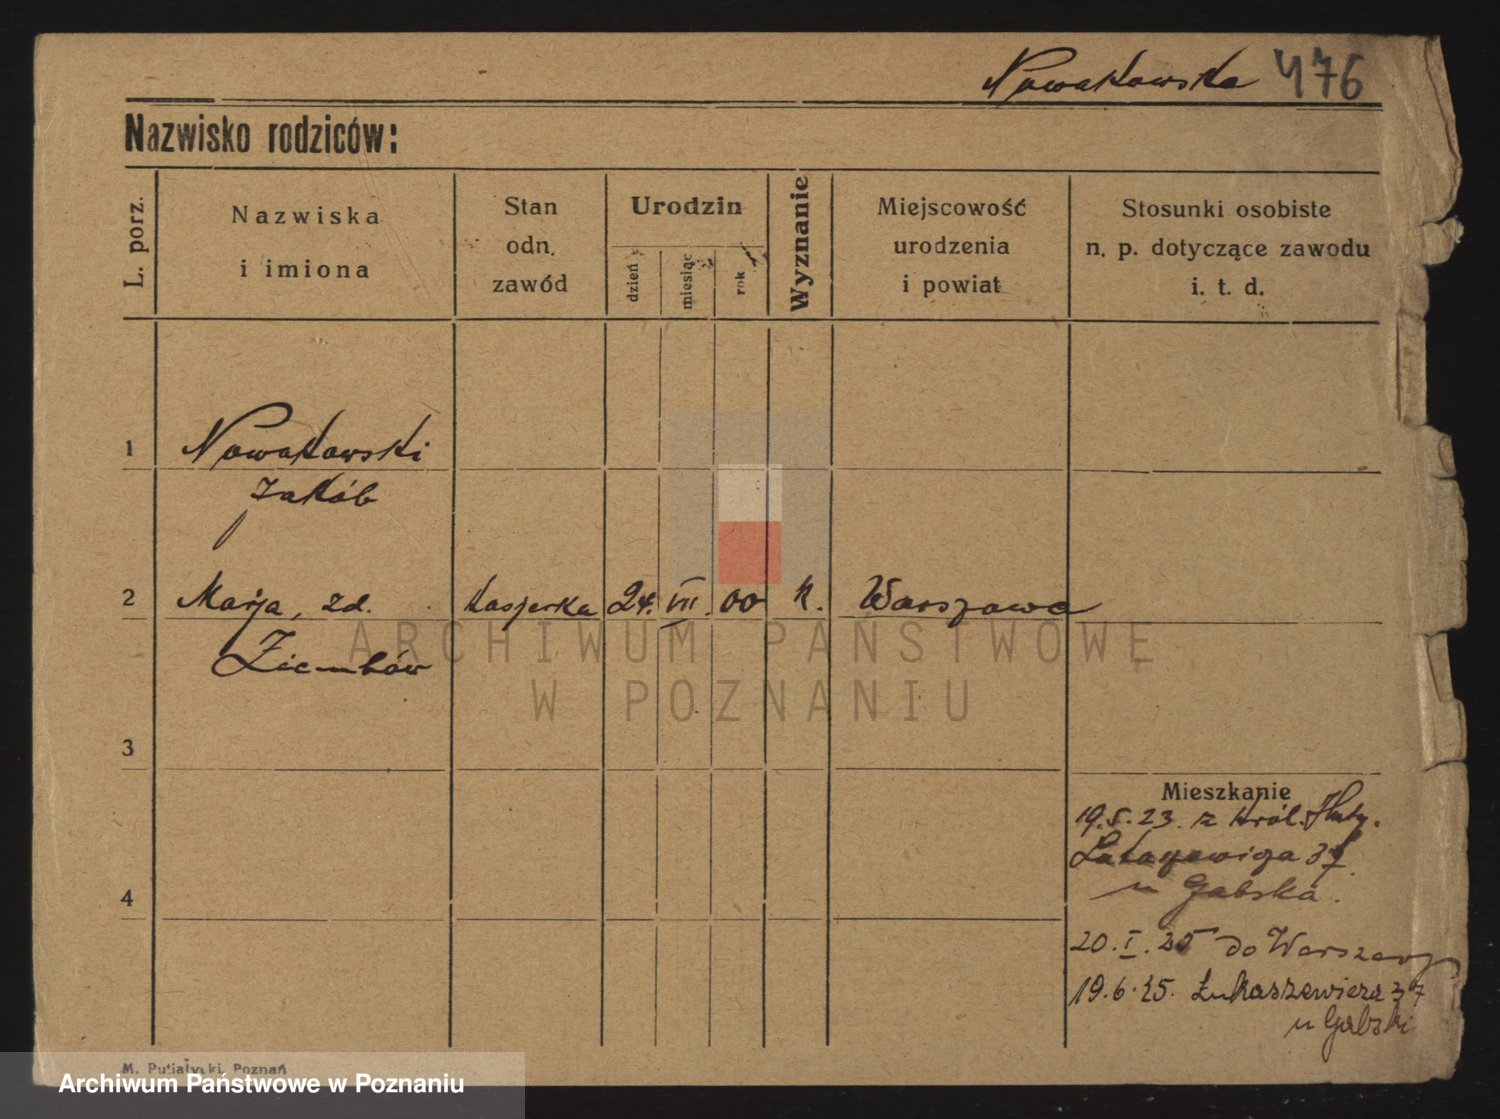 Nowakowska 476
Nazwisko rodziców:
L. porz.
Nazwiska
i imiona
Stan
odn.
zawód
Urodzin
dzień
miesiąc
rok
Wyznanie
Miejscowość
urodzenia
i powiat
Stosunki osobiste
n. p. dotyczące zawodu
i. t. d.
1 Nowakowski
Jakób
2 Marja, zd. kasjerka 24. VII. 00 k. Warszawa
Ziembów
3
4
Mieszkanie
19.5.23. z Król. Huty.
37
u Gabska.
20. I. 25 do Warszawy
19.6.25. Łukaszewicza 37
u Gabski
ARCHIWUM PAŃSTWOWE
W POZNANIU
M. Putiatycki, Poznań
Archiwum Państwowe w Poznaniu